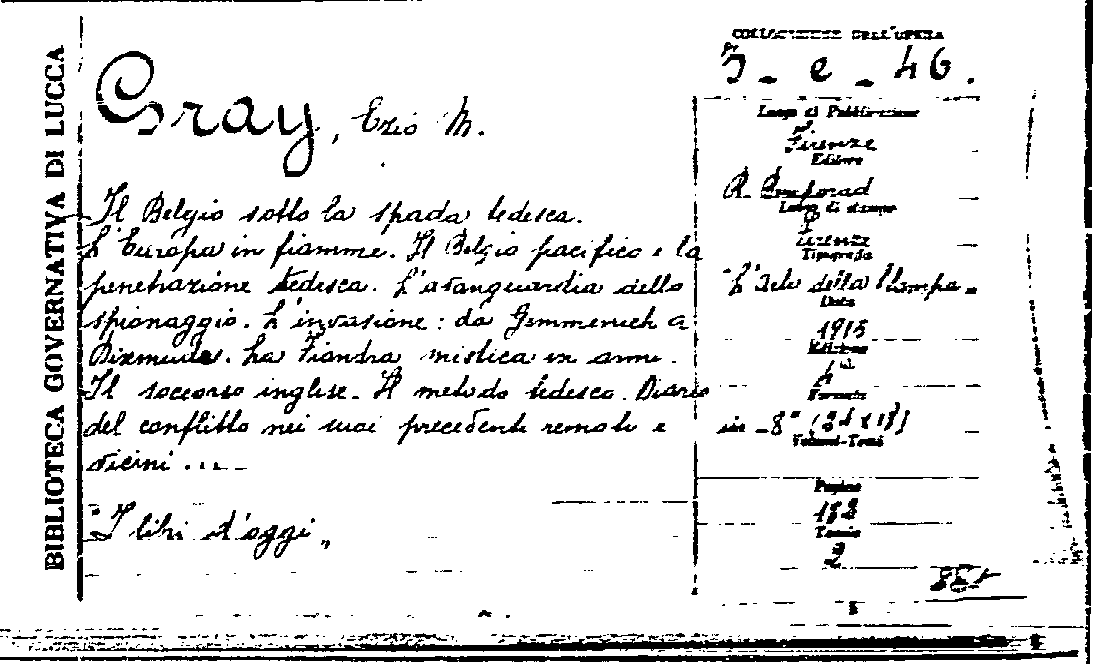 BIBLIOTECA GOVERNATIVA DI LUCCA
Gray, Ezio M.
Il Belgio sotto la spada tedesca.
L'Europa in fiamme. Il Belgio pacifico e la
penetrazione tedesca. L'avanguardia dello
spionaggio. L'invasione: da Gemmenich a
Dixmude. La Fiandra mistica in armi.
Il soccorso inglese. Il metodo tedesco. Diario
del conflitto nei suoi precedenti remoti e
vicini ....
"I libri d'oggi"
COLLOCAZIONE DELL'OPERA
e - 46.
Luogo di Pubblicazione
Firenze
Editore
R. Bemporad
Luogo di stampa
Firenze
Tipografia
"L'Arte della Stampa"
Data
1915
Edizione
Formato
in - 8°
Volumi-Tomi
Pagine
Tavole
2